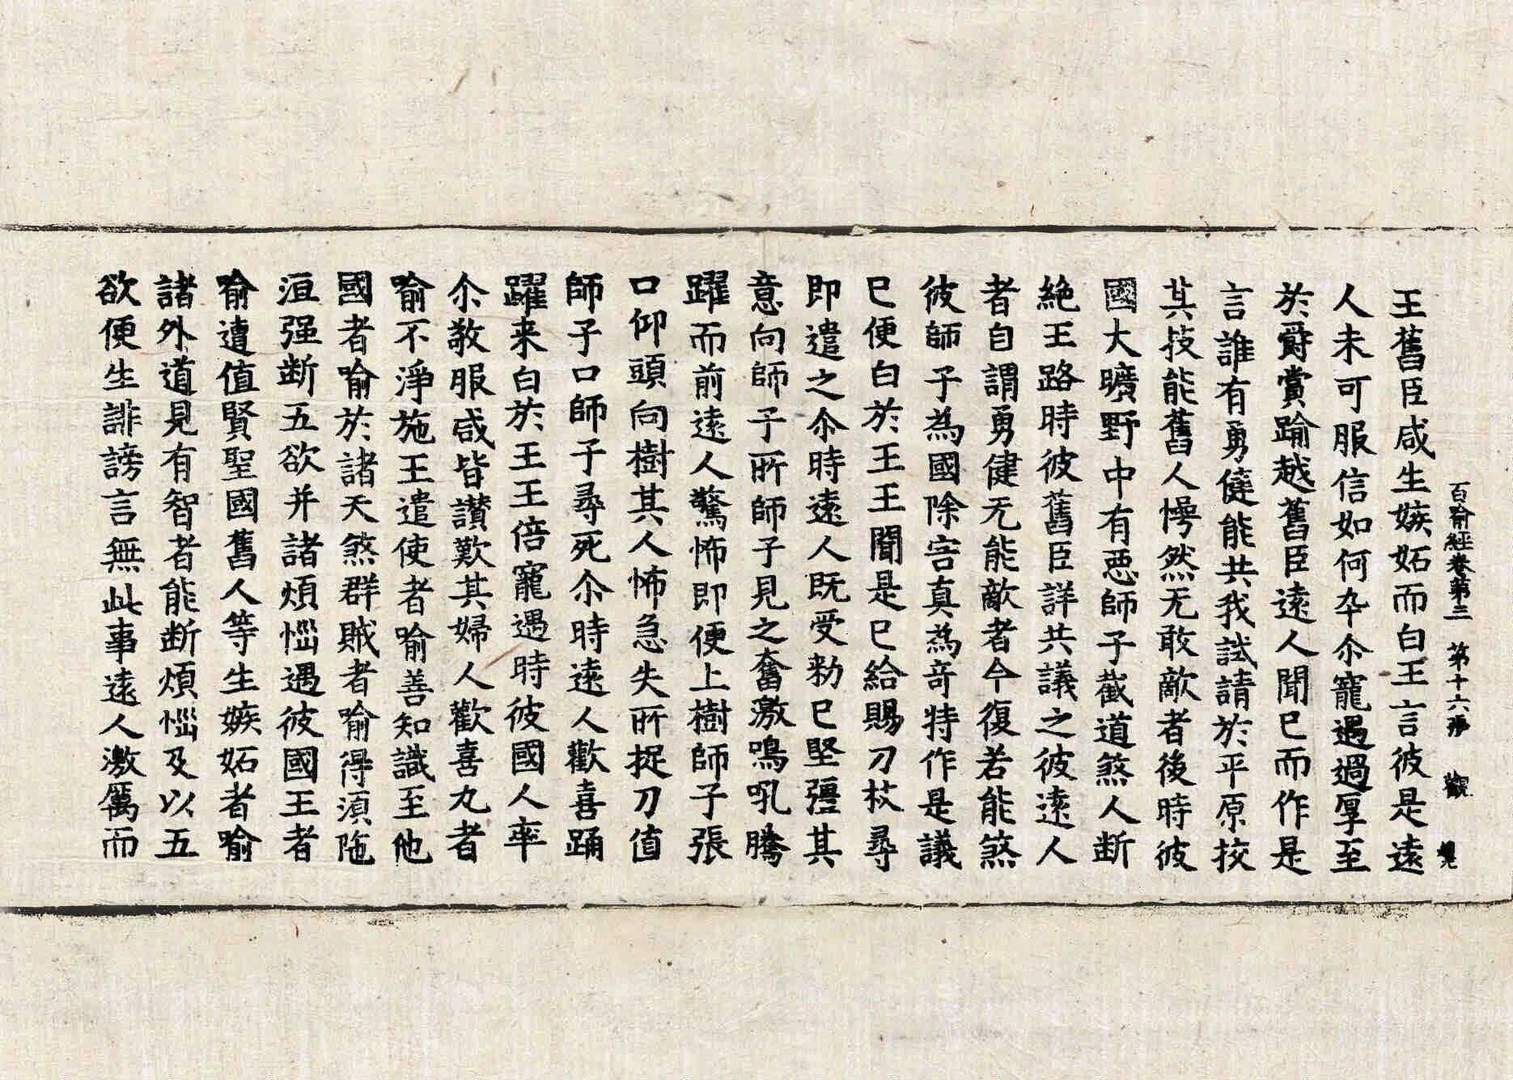 百喻經卷第三 第十六張 觀
王舊臣咸生嫉妬而白王言彼是遠
人未可服信如何卒尒寵遇過厚至
於爵賞踰越舊臣遠人聞已而作是
言誰有勇健能共我試請於平原挍
其技能舊人愕然无敢敵者後時彼
國大曠野中有惡師子截道煞人断
絶王路時彼舊臣詳共議之彼遠人
者自謂勇健无能敵者今復若能煞
彼師子為國除害真為奇特作是議
已便白於王王聞是已給賜刀杖尋
即遣之尒時遠人既受勑已堅彊其
意向師子所師子見之奮激鳴吼騰
躍而前遠人驚怖即便上樹師子張
口仰頭向樹其人怖急失所捉刀值
師子口師子尋死尒時遠人歡喜踊
躍来白於王王倍寵遇時彼國人率
尒敬服咸皆讃歎其婦人歡喜丸者
喻不淨施王遣使者喻善知識至他
國者喻於諸天煞群賊者喻得湏陁
洹强断五欲并諸煩惱遇彼國王者
喻遭值賢聖國舊人等生嫉妬者喻
諸外道見有智者能断煩惱及以五
欲便生誹謗言無此事遠人激厲而